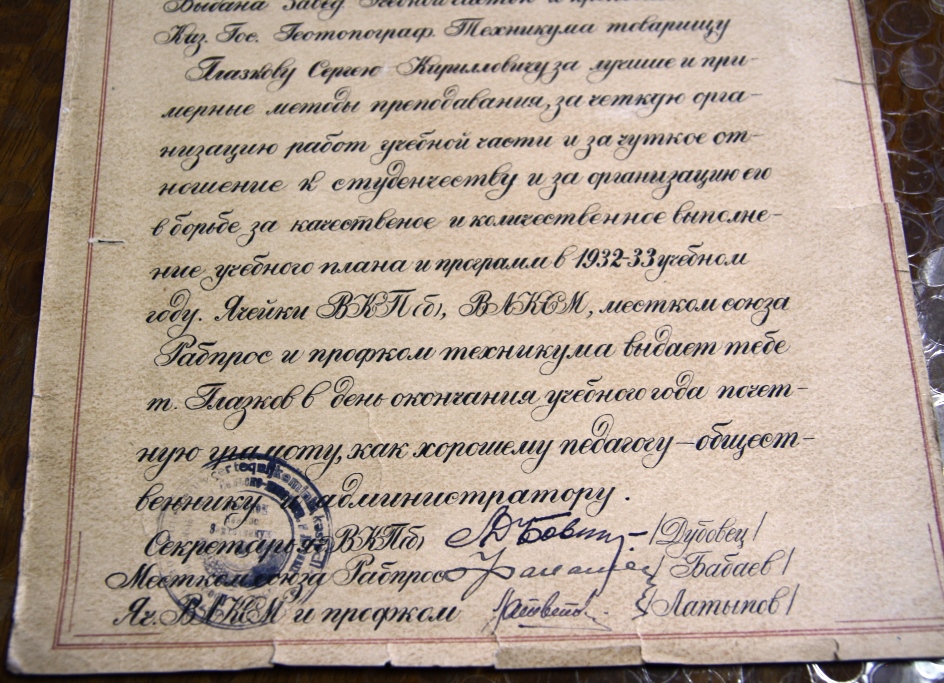 Выдана Завед. Учебной частью
Каз. Гос. Геотопограф. Техникума товарищу
Глазкову Сергею Кирилловичу за лучшие и при-
мерные методы преподавания, за четкую орга-
низацию работ учебной части и за чуткое от-
ношение к студенчеству и за организацию его
в борьбе за качественое и количественное выполне-
ние учебного плана и программ в 1932-33 учебном
году. Ячейки ВКП(б), ВЛКСМ, местком союза
Рабпрос и профком техникума выдает тебе
т. Глазков в день окончания учебного года почет-
ную грамоту, как хорошему педагогу – общест-
веннику и администратору.
Секретарь яч. ВКП(б) /Дубовец/
Местком союза Рабпрос /Бабаев/
Яч. ВЛКСМ и профком /Латыпов/